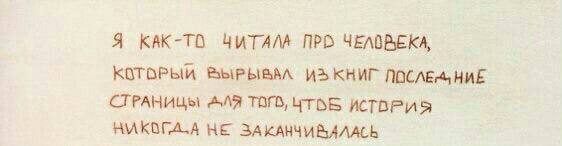 Я КАК-ТО ЧИТАЛА ПРО ЧЕЛОВЕКА,
КОТОРЫЙ ВЫРЫВАЛ ИЗ КНИГ ПОСЛЕДНИЕ
СТРАНИЦЫ ДЛЯ ТОГО, ЧТОБ ИСТОРИЯ
НИКОГДА НЕ ЗАКАНЧИВАЛАСЬ